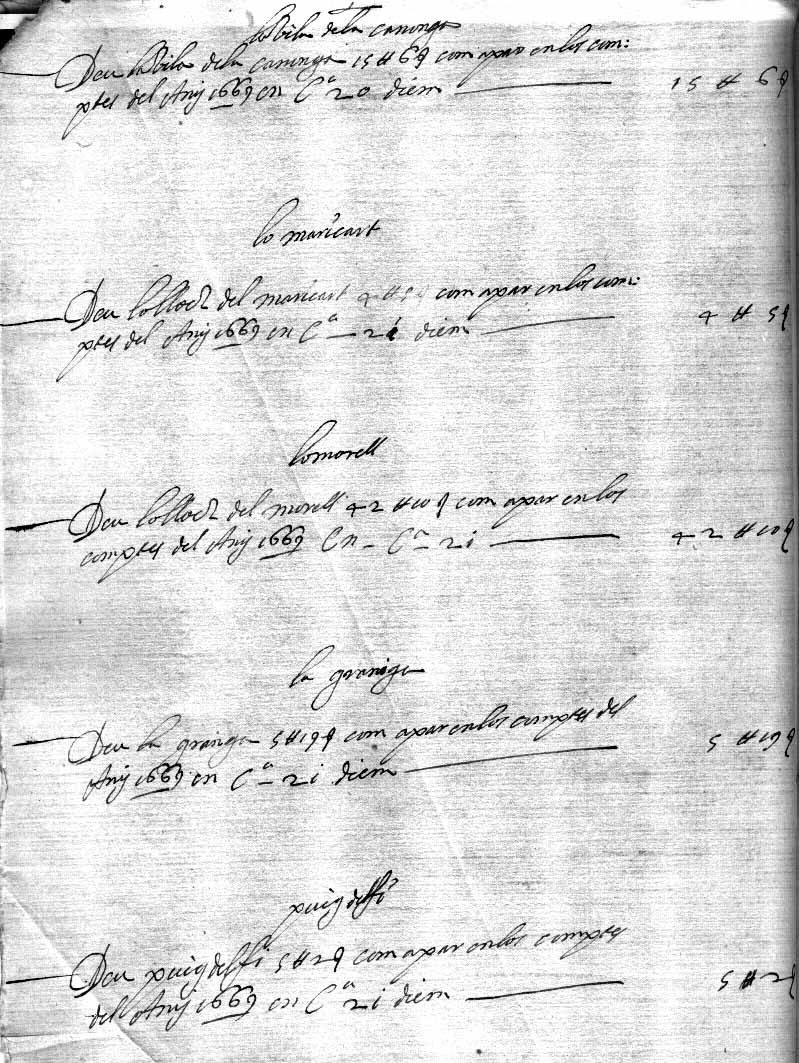 la Vila dela canonga
Deu la Vila dela canonga 15 ₶ 6 ß com apar en los com:
ptes del Any 1669 en Cª 20 diem 15 ₶ 6 ß
lo maricart
Deu lo lloch del maricart 4 ₶ 5 ß com apar en los com:
ptes del Any 1669 en Cª 21 diem 4 ₶ 5 ß
lo morell
Deu lo lloch del morell 42 ₶ 10 ß com apar en los
comptes del Any 1669 En Cª 21 42 ₶ 10 ß
la granja
Deu la granja 5 ₶ 19 ß com apar en los comptes del
Any 1669 en Cª 21 diem 5 ₶ 19 ß
puigdelfi
Deu puigdelfi 5 ₶ 2 ß com apar en los comptes
del Any 1669 en Cª 21 diem 5 ₶ 2 ß